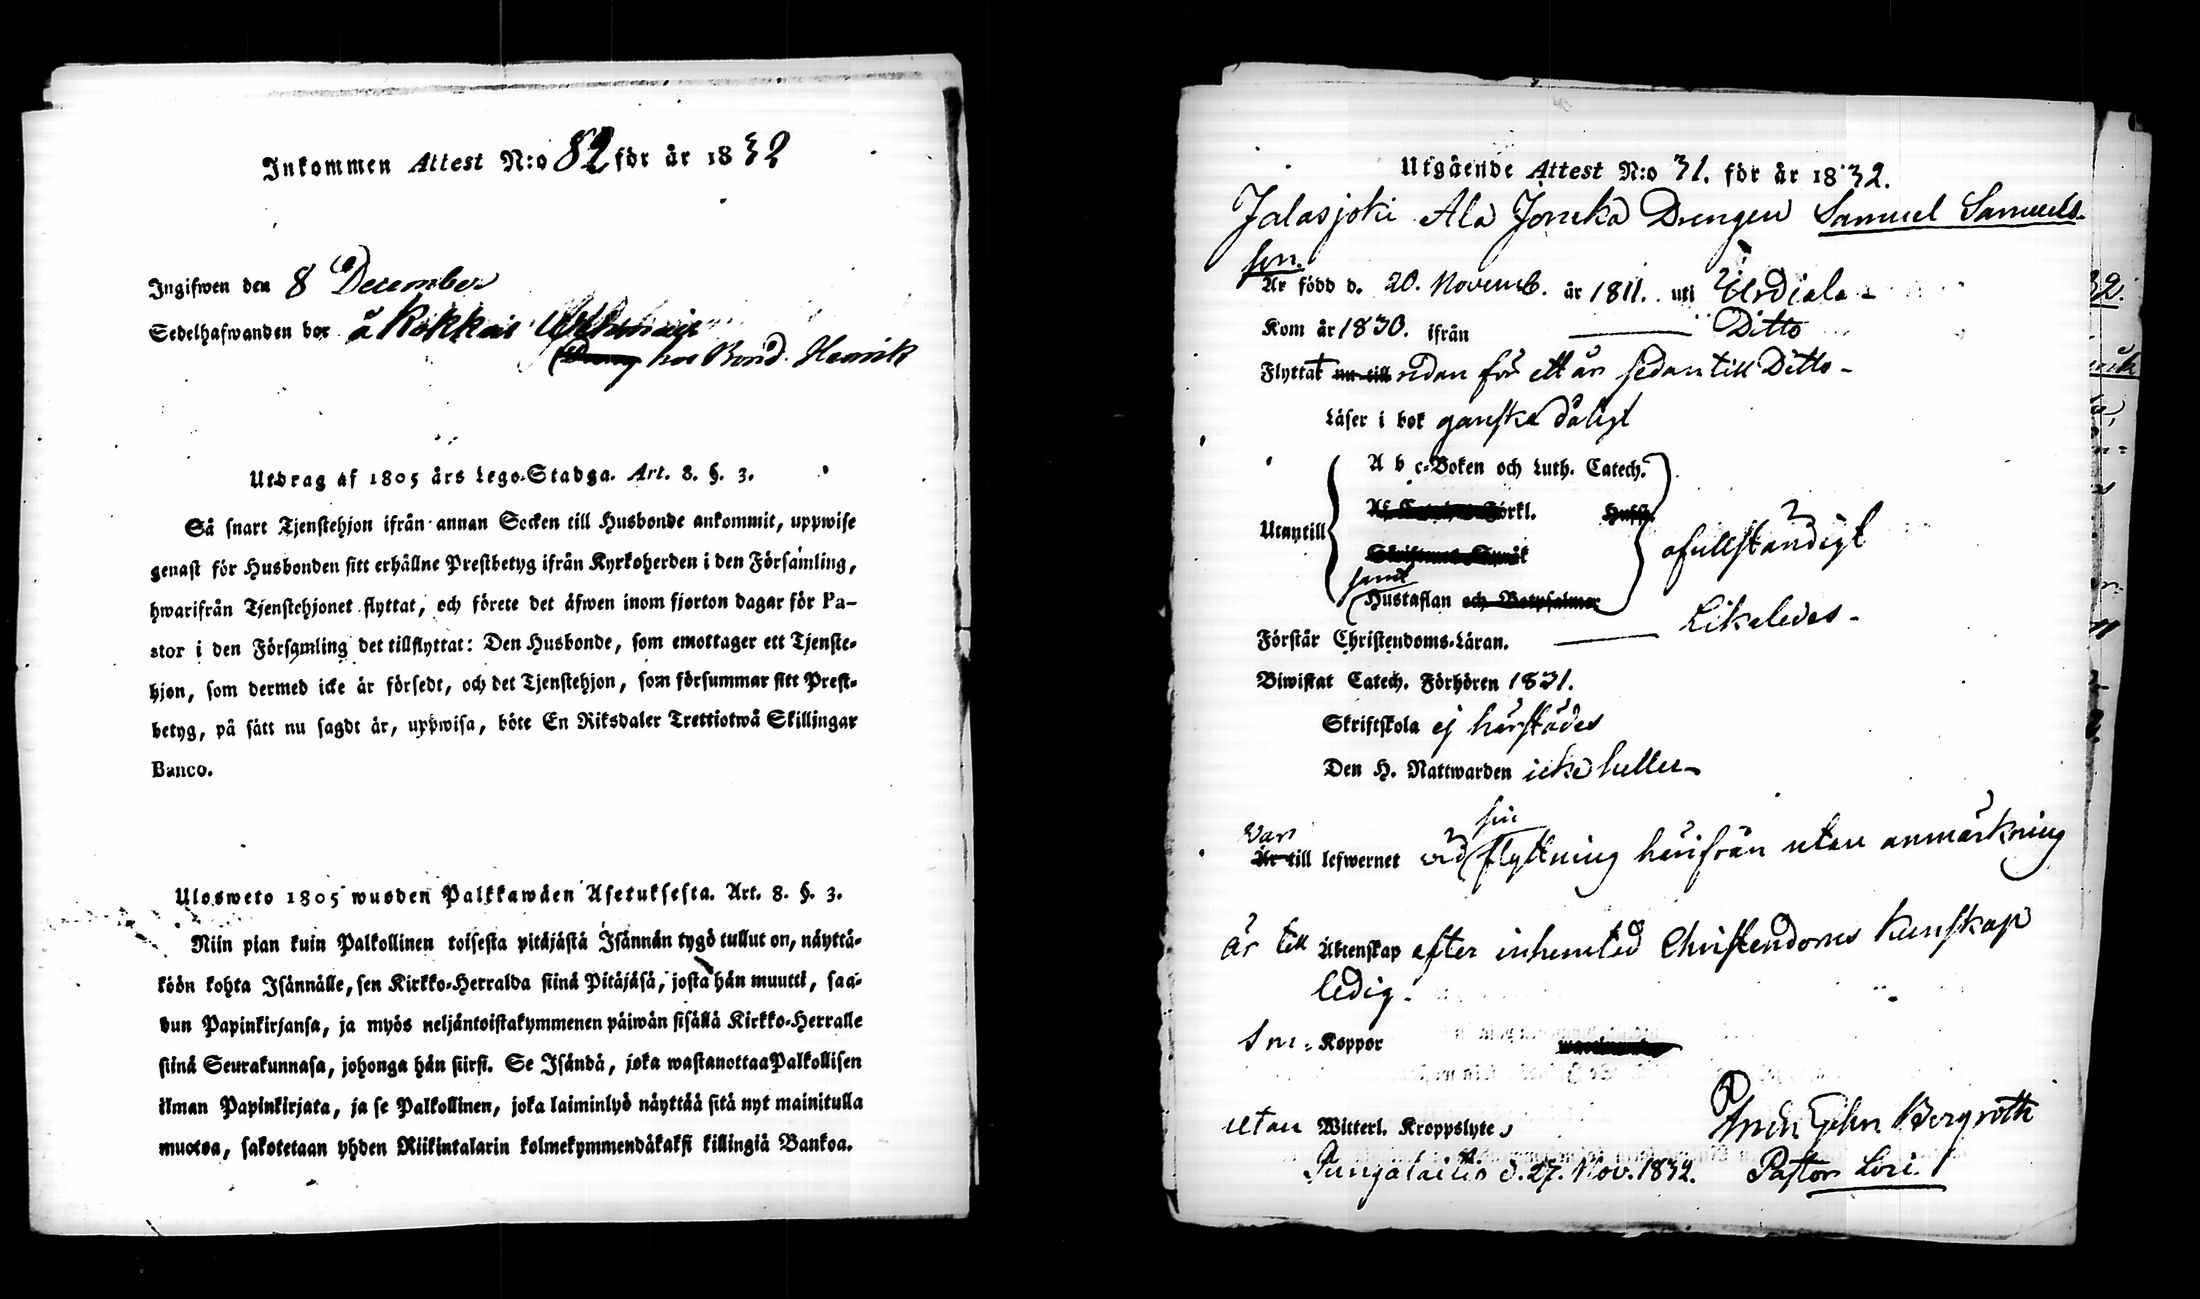 Inkommen Attest N:o 82 för år 1832
Ingifwen den 8 December
Sedelhafwanden bor å Kokkais
hos Bond. Henrik
Utdrag af 1805 års Lego-Stadga. Art. 8. §. 3.
Så snart Tjenstehjon ifrån annan Socken till Husbonde ankommit, uppwise
genast för Husbonden sitt erhållne Prestbetyg ifrån Kyrkoherden i den Församling,
hwarifrån Tjenstehjonet flyttat, och förete det äfwen inom fjorton dagar för Pa-
stor i den Församling det tillflyttat: Den Husbonde, som emottager ett Tjenste-
hjon, som dermed icke är försedt, och det Tjenstehjon, som försummar sitt Prest-
betyg, på sätt nu sagdt är, uppwisa, böte En Riksdaler Trettiotwå Skillingar
Banco.
Ulosweto 1805 wuoden Palkkawäen Asetuksesta. Art. 8. §. 3.
Niin pian kuin Palkollinen toisesta pitäjästä Isännän tygö tullut on, näyttä-
köön kohta Isännälle, sen Kirkko-Herralda siinä Pitäjäsä, josta hän muutti, saa-
dun Papinkirjansa, ja myös neljäntoistakymmenen päiwän sisällä Kirkko-Herralle
siinä Seurakunnasa, johonga hän siirsi. Se Isändä, joka wastanottaa Palkollisen
ilman Papinkirjata, ja se Palkollinen, joka laiminlyö näyttää sitä nyt mainitulla
muotoa, sakotetaan yhden Riikintalarin kolmekymmendäkaksi killingiä Bankoa.
Utgående Attest N:o 31. för år 1832.
Jalasjoki Ala Jouska Drengen Samuel Samuels-
son.
Är född d. 20. Novemb. år 1811. uti Urdiala
Kom år 1830. ifrån Ditto
Flyttat nu till redan för ett år sedan till Ditto
Läser i bok ganska dåligt
Utantill
A b c-Boken och Luth. Catech.
Förkl. Hust.
ofullständigt
samt
Hustaflan och Botpsalmer
Förstår Christendoms-Läran. Likaledes
Biwistat Catech. Förhören 1831.
Skriftskola ej härstädes
Den H. Nattwarden icke heller
Var sin
Är till lefwernet vid flyttning härifrån utan anmärkning
är till Äktenskap efter inhemtad Christendoms kunskap
ledig.
Koppor
utan Witterl. Kroppslyte
Bergroth
d. 27. Nov. 1832. Pastor Loci.